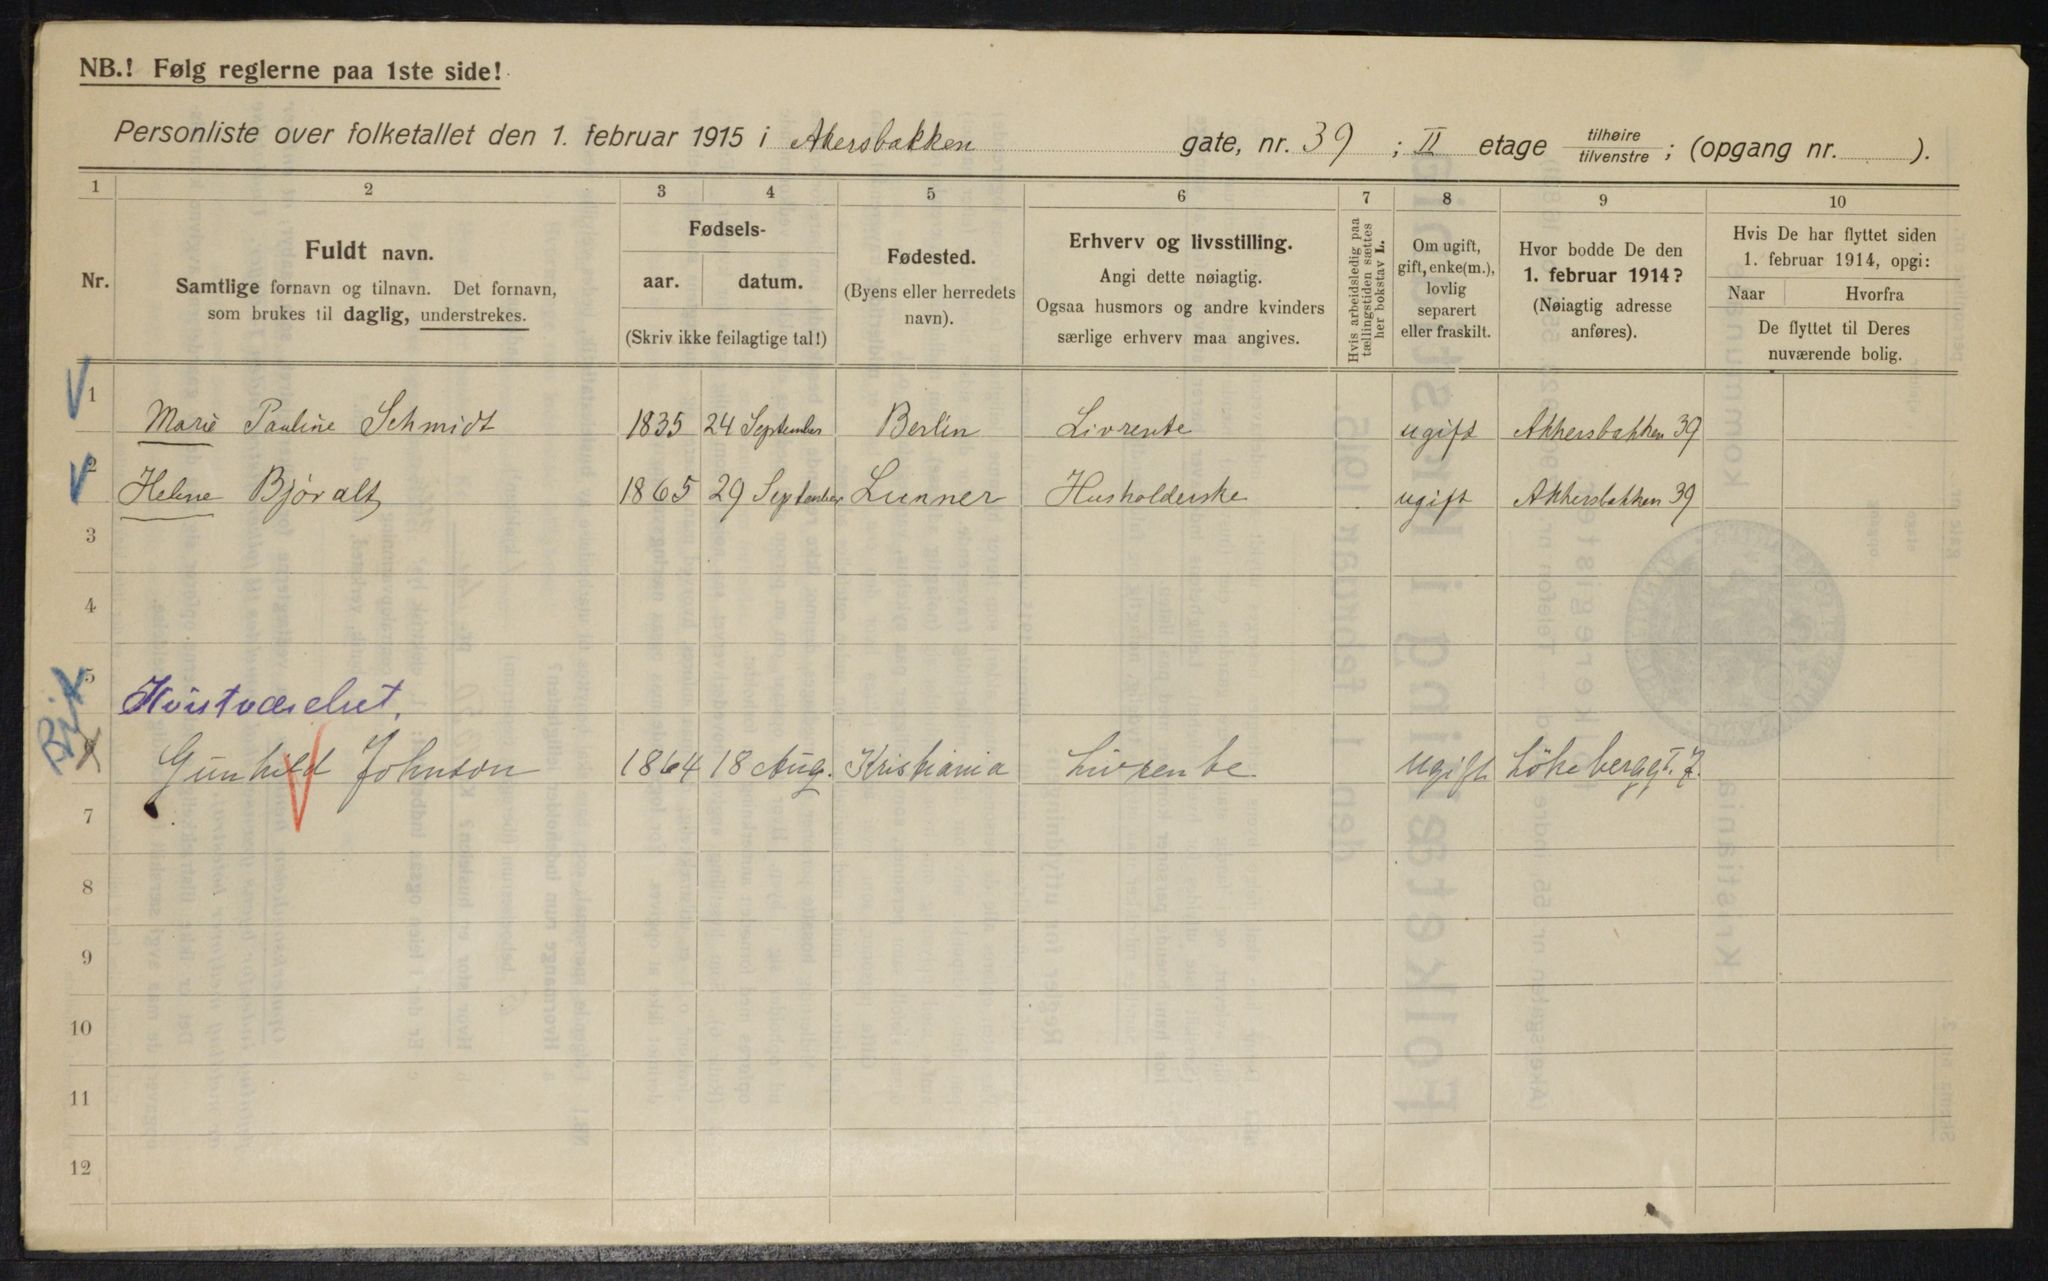 NB.! Følg reglerne paa 1ste side!
Personliste over folketallet den 1. februar 1915 i Akersbakken gate, nr. 39 ; II etage tilhøire / tilvenstre ; (opgang nr. ).
1 2 3 4 5 6 7 8 9 10
Nr.
Fuldt navn.
Samtlige fornavn og tilnavn. Det fornavn,
som brukes til daglig, understrekes.
Fødsels-
aar. datum.
(Skriv ikke feilagtige tal!)
Fødested.
(Byens eller herredets
navn).
Erhverv og livsstilling.
Angi dette nøiagtig.
Ogsaa husmors og andre kvinders
særlige erhverv maa angives.
Hvis arbeidsledig paa
tællingstiden sættes
her bokstav L.
Om ugift,
gift, enke(m.),
lovlig
separert
eller fraskilt.
Hvor bodde De den
1. februar 1914?
(Nøiagtig adresse
anføres).
Hvis De har flyttet siden
1. februar 1914, opgi:
Naar Hvorfra
De flyttet til Deres
nuværende bolig.
1 Marie Pauline Schmidt 1835 24 September Berlin Livrente ugift Akkersbakken 39
2 Helene Bjøralt 1865 29 September Lunner Husholderske ugift Akkersbakken 39
3
4
5 Kvistværelset.
6 Gunhild Johnson 1864 18 Aug. Kristiania Livrente ugift Løkkeberggt. 7.
7
8
9
10
11
12